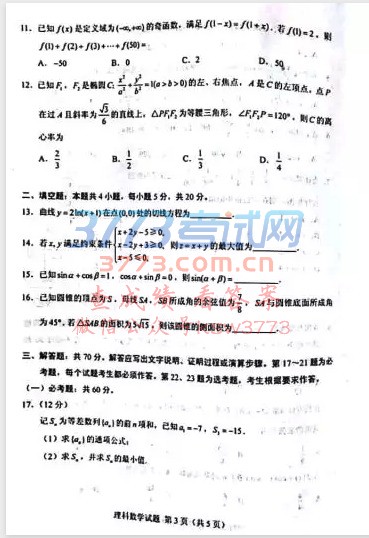 11. 已知 f(x) 是定义域为 (-∞,+∞) 的奇函数，满足 f(1-x)=f(1+x)．若 f(1)=2，则
f(1)+f(2)+f(3)+⋯+f(50)=
A. -50 B. 0 C. 2 D. 50
12. 已知 F₁，F₂ 是椭圆 C: x²/a²+y²/b²=1(a>b>0) 的左、右焦点，A 是 C 的左顶点，点 P
在过 A 且斜率为 √3/6 的直线上，△PF₁F₂ 为等腰三角形，∠F₁F₂P=120°，则 C 的离
心率为
A. 2/3 B. 1/2 C. 1/3 D. 1/4
二、填空题：本题共 4 小题，每小题 5 分，共 20 分。
13. 曲线 y=2ln(x+1) 在点 (0,0) 处的切线方程为
14. 若 x,y 满足约束条件 {x+2y-5≥0, x-2y+3≥0, x-5≤0, 则 z=x+y 的最大值为
3773考试网
3773.com.cn
15. 已知 sinα+cosβ=1，cosα+sinβ=0，则 sin(α+β)=
16. 已知圆锥的顶点为 S，母线 SA，SB 所成角的余弦值为 7/8，SA 与圆锥底面所成角
为 45°．若 △SAB 的面积为 5√15，则该圆锥的侧面积为
三、解答题：共 70 分。解答应写出文字说明、证明过程或演算步骤。第 17～21 题为必
考题，每个试题考生都必须作答。第 22、23 题为选考题，考生根据要求作答。
（一）必考题：共 60 分。
17.（12 分）
记 Sₙ 为等差数列 {aₙ} 的前 n 项和，已知 a₁=-7，S₃=-15．
（1）求 {aₙ} 的通项公式；
（2）求 Sₙ，并求 Sₙ 的最小值．
理科数学试题 第 3 页（共 5 页）